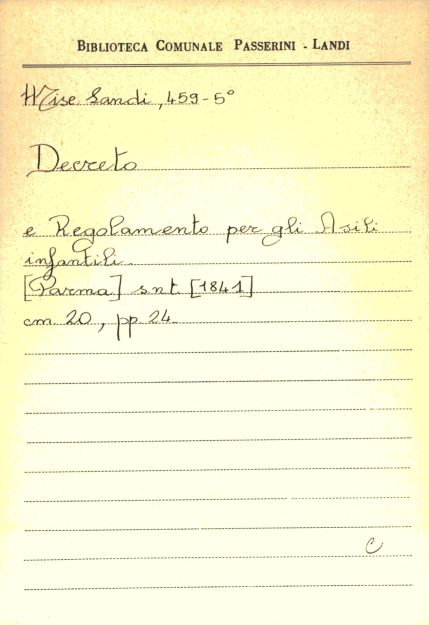 BIBLIOTECA COMUNALE PASSERINI - LANDI
Misc Landi, 459-5°
Decreto
e Regolamento per gli Asili
infantili.
[Parma] s.n.t. [1841]
cm 20, pp 24
C